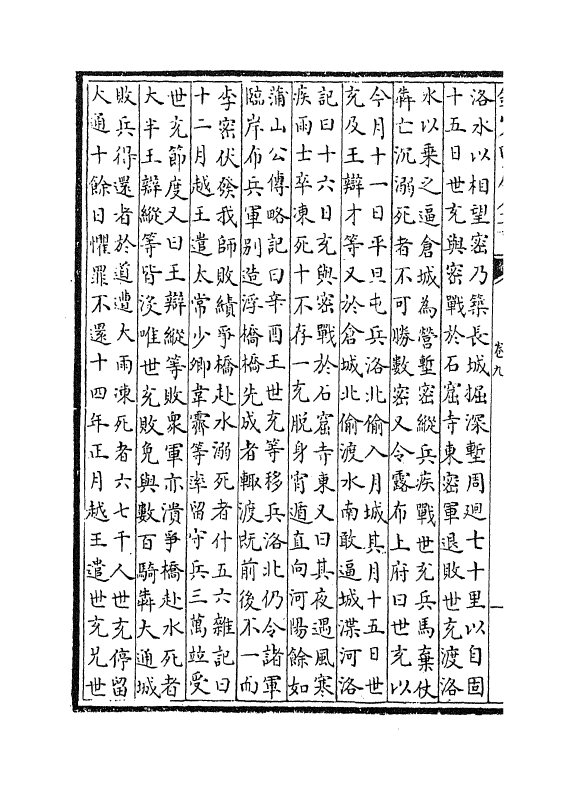 卷九
洛水以相望密乃築長城掘深塹周迴七十里以自固
十五日世充與密戰於石窟寺東密軍退敗世充渡洛
水以乗之逼倉城為營塹密縱兵疾戰世充兵馬棄仗
犇亡沉溺死者不可勝數密又令露布上府曰世充以
今月十一日平旦屯兵洛北偷入月城其月十五日世
充及王辯才等又於倉城北偷渡水南敢逼城渫河洛
記曰十六日充與密戰於石窟寺東又曰其夜遇風寒
疾雨士卒凍死十不存一充脱身宵遁直向河陽餘如
蒲山公傳略記曰辛酉王世充等移兵洛北仍令諸軍
臨岸布兵軍别造浮橋橋先成者輙渡既前後不一而
李密伏發我師敗績爭橋赴水溺死者什五六雜記曰
十二月越王遣太常少卿韋霽等率留守兵三萬竝受
世充節度又曰王辯縱等敗衆軍亦潰爭橋赴水死者
大半王辯縱等皆沒唯世充敗免與數百騎犇大通城
敗兵得還者於道遭大雨凍死者六七千人世充停留
大通十餘日懼罪不還十四年正月越王遣世充兄世